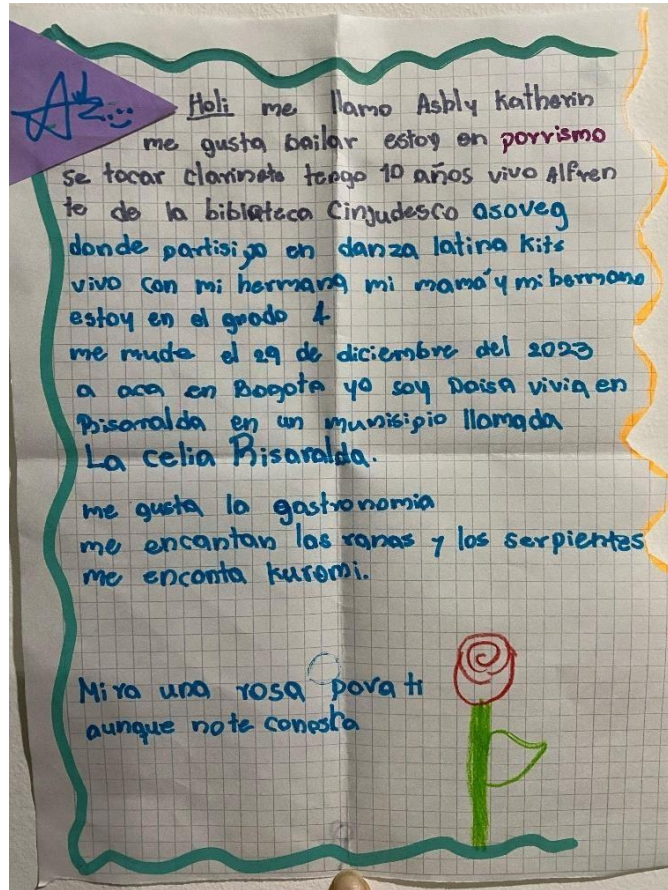 Holi me llamo Ashly Katherin
me gusta bailar estoy en porrismo
se tocar clarinete tengo 10 años vivo Alfren
te de la biblioteca Cinjudesco asoveg
donde partisipo en danza latina kits
vivo con mi hermana mi mamá y mi hermano
estoy en el grado 4
me mude el 29 de diciembre del 2023
a aca en Bogota yo soy Paisa vivia en
Risaralda en un munisipio llamada
La celia Risaralda.
me gusta la gastronomia
me encantan las ranas y los serpientes
me enconta kuromi.
Mira una rosa para ti
aunque no te